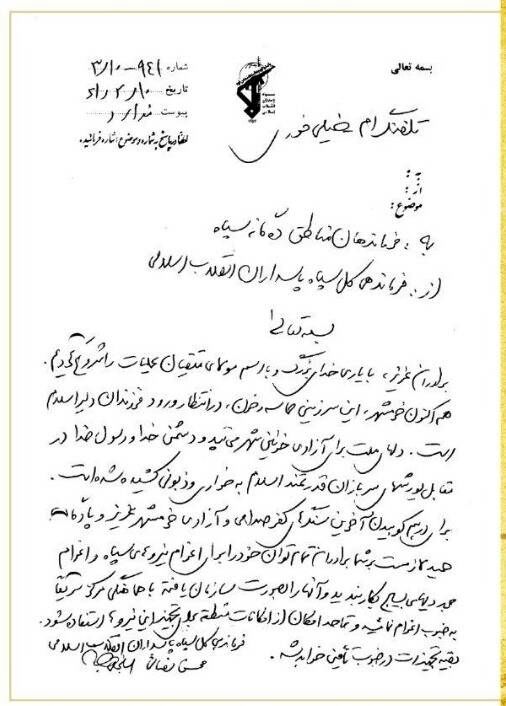 بسمه تعالی
شماره ۹۴۱-۳/۱۰
تاریخ ۶۱/۲/۱۰
پیوست ندارد
لطفاً در پاسخ به شماره و موضوع اشاره فرمائید.
تلفنگرام خیلی فوری
به:
از:
موضوع:
به: فرماندهان مناطق دهگانه سپاه
از: فرماندهی کل سپاه پاسداران انقلاب اسلامی
بسمه تعالی
برادران عزیز، با یاری خدای بزرگ و با رسم مولای متقیان عملیات را شروع کردیم.
هم اکنون خرمشهر، این سرزمین حماسه و خون، در انتظار ورود فرزندان دلیر اسلام
است. دلهای ملت برای آزادی خونین شهر می تپد و دشمن خدا و رسول خدا در
مقابل یورشهای سربازان قدرتمند اسلام به خواری و زبونی کشیده شده است.
برای درهم کوبیدن آخرین سنگرهای کفر صدامی و آزادی خرمشهر عزیز و پادگان
حمید لازمست شما برادران تمام توان خود را برای اعزام نیروهای سپاه و اعزام
های بسیج بکار بندید و آنها را بصورت سازمان یافته با هماهنگی مرکز سریعاً
به جنوب اعزام نمائید و تا حد امکان از امکانات منطقه برای تجهیز این نیروها استفاده شود.
بقیه تجهیزات در جنوب تأمین خواهد شد.
فرماندهی کل سپاه پاسداران انقلاب اسلامی
محسن رضائی